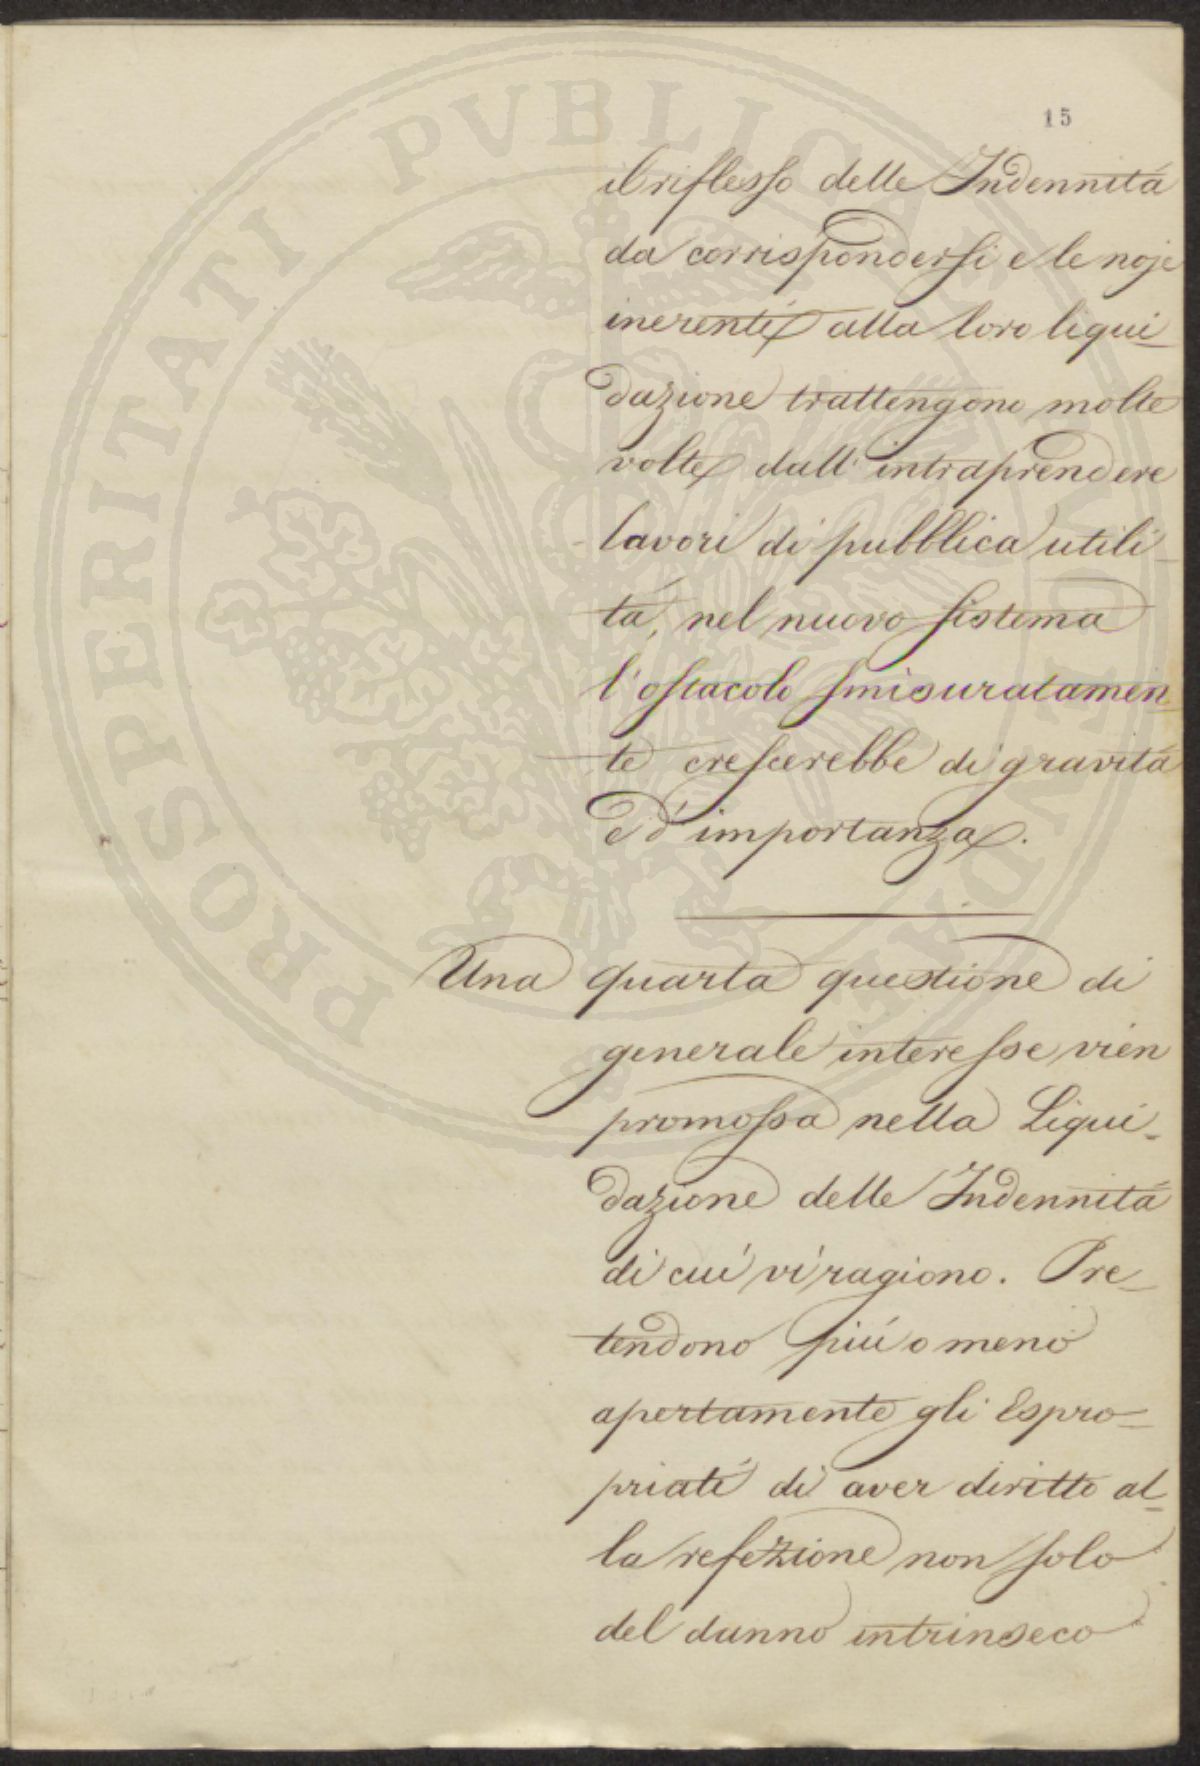 15
il riflesso delle Indennità
da corrispondersi e le noje
inerenti alla loro liqui-
dazione trattengono molte
volte dall'intraprendere
lavori di pubblica utili-
tà, nel nuovo sistema
l'ostacolo smisuratamen-
te crescerebbe di gravità
e d'importanza.
Una quarta questione di
generale interesse vien
promossa nella Liqui-
dazione delle Indennità
di cui vi ragiono. Pre-
tendono più o meno
apertamente gli Espro-
priati di aver diritto al-
la refezione non solo
del danno intrinseco
PROSPERITATI PVBLICAE